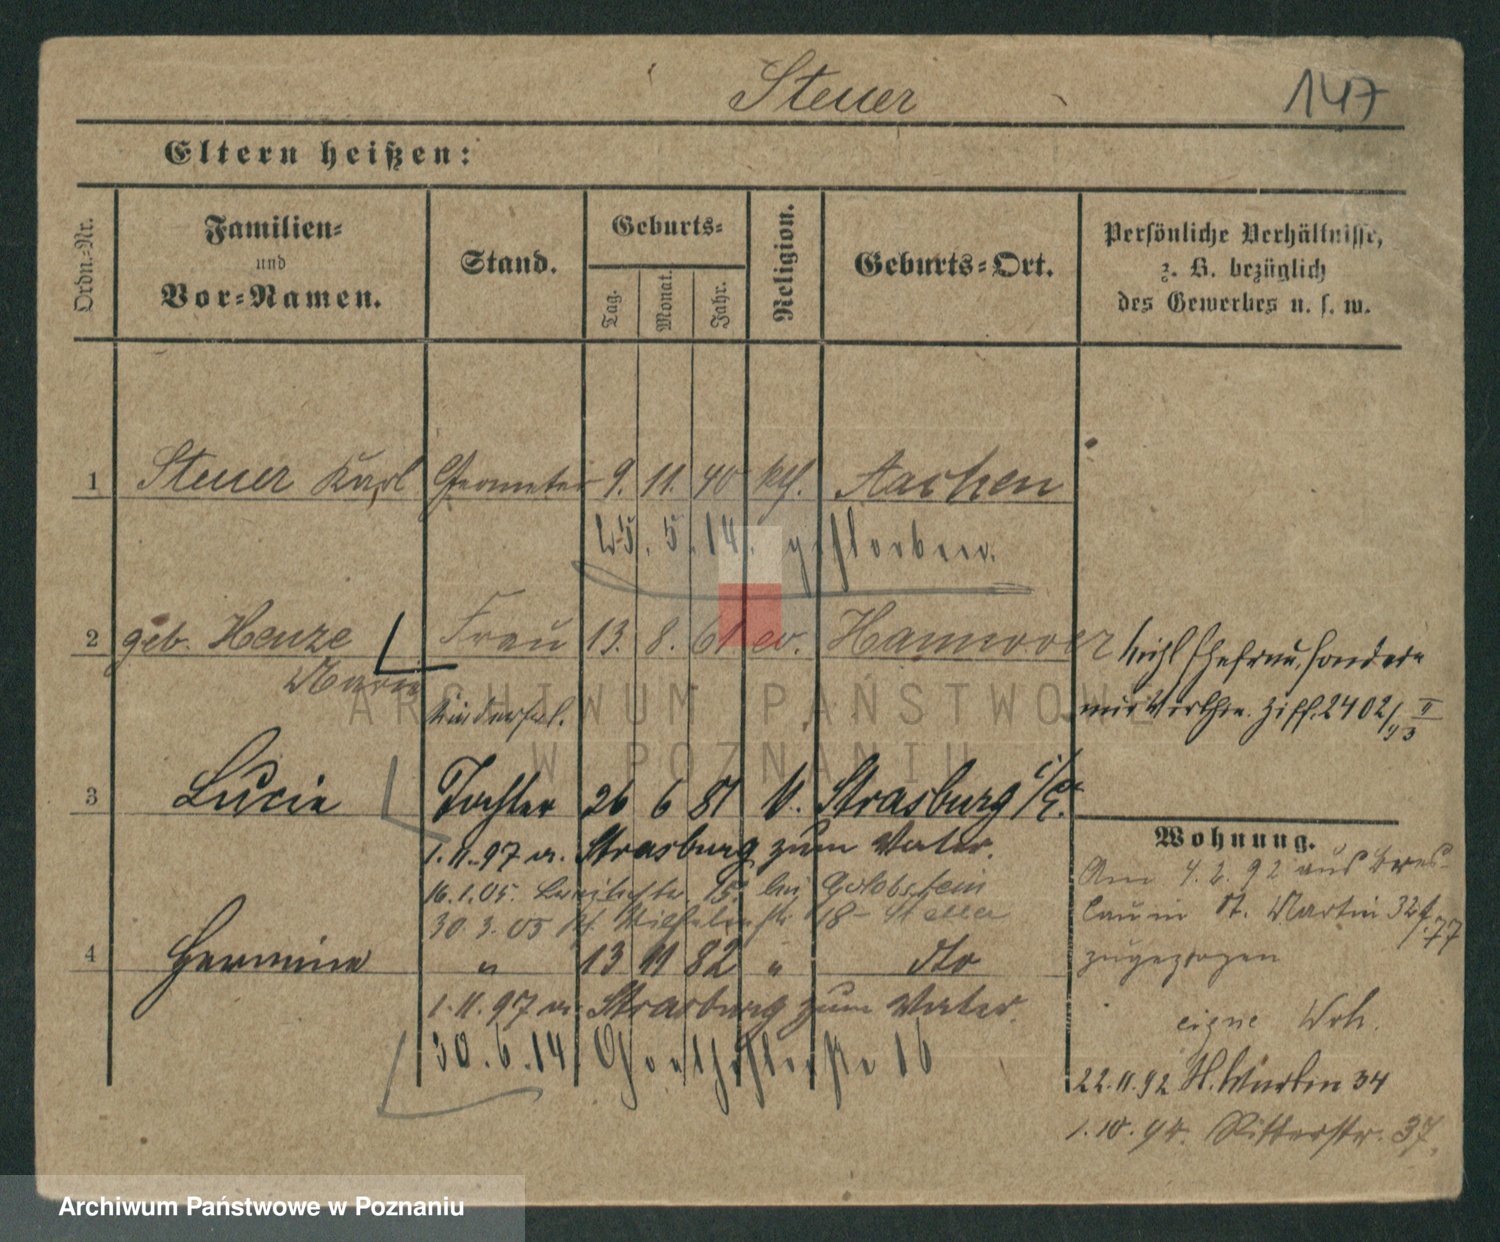 Steuer
147
Eltern heißen:
Ordn.-Nr.
Familien-
und
Vor-Namen.
Stand.
Geburts-
Tag.
Monat.
Jahr.
Religion.
Geburts-Ort.
Persönliche Verhältnisse,
z. B. bezüglich
des Gewerbes u. s. w.
1 Steuer Karl Geometer 9. 11. 40 kth. Aachen
25. 5. 14. gestorben.
2 geb. Henze Frau 13. 8. 61 ev. Hannover
Marie
nicht Ehefrau, sondern
nur Wirthin. Ziff. 2402/93 II
3 Lucie Tochter 26 6 81 Strasburg i/E.
1.11.97 n. Strasburg zum Vater.
16.1.05. 15. bei Goldstein
30.3.05 Wilhelmstr 18
4 Hermine " 13 11 82 " dto
1.11.97 n. Strasburg zum Vater.
30.6.14. 16
Wohnung.
Am 4.2.92 aus Bres-
lau in St. Martin 32
zugezogen
eigne Woh.
22.11.92 St. Martin 34
1.10.94. Ritterstr. 37.
ARCHIWUM PAŃSTWOWE
W POZNANIU
Archiwum Państwowe w Poznaniu